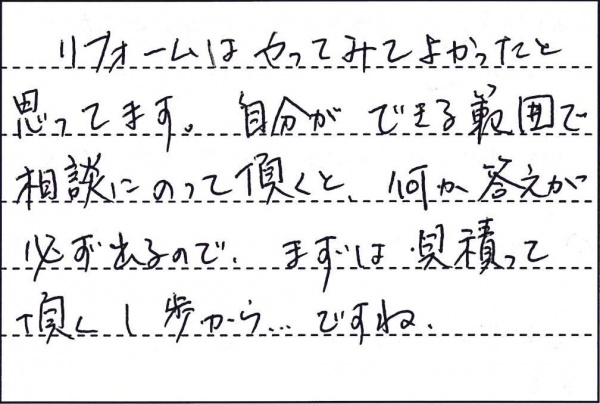 リフォームはやってみてよかったと
思ってます。自分ができる範囲で
相談にのって頂くと、何か答えが
必ず出るので、まずは見積って
頂く1歩から…ですね。